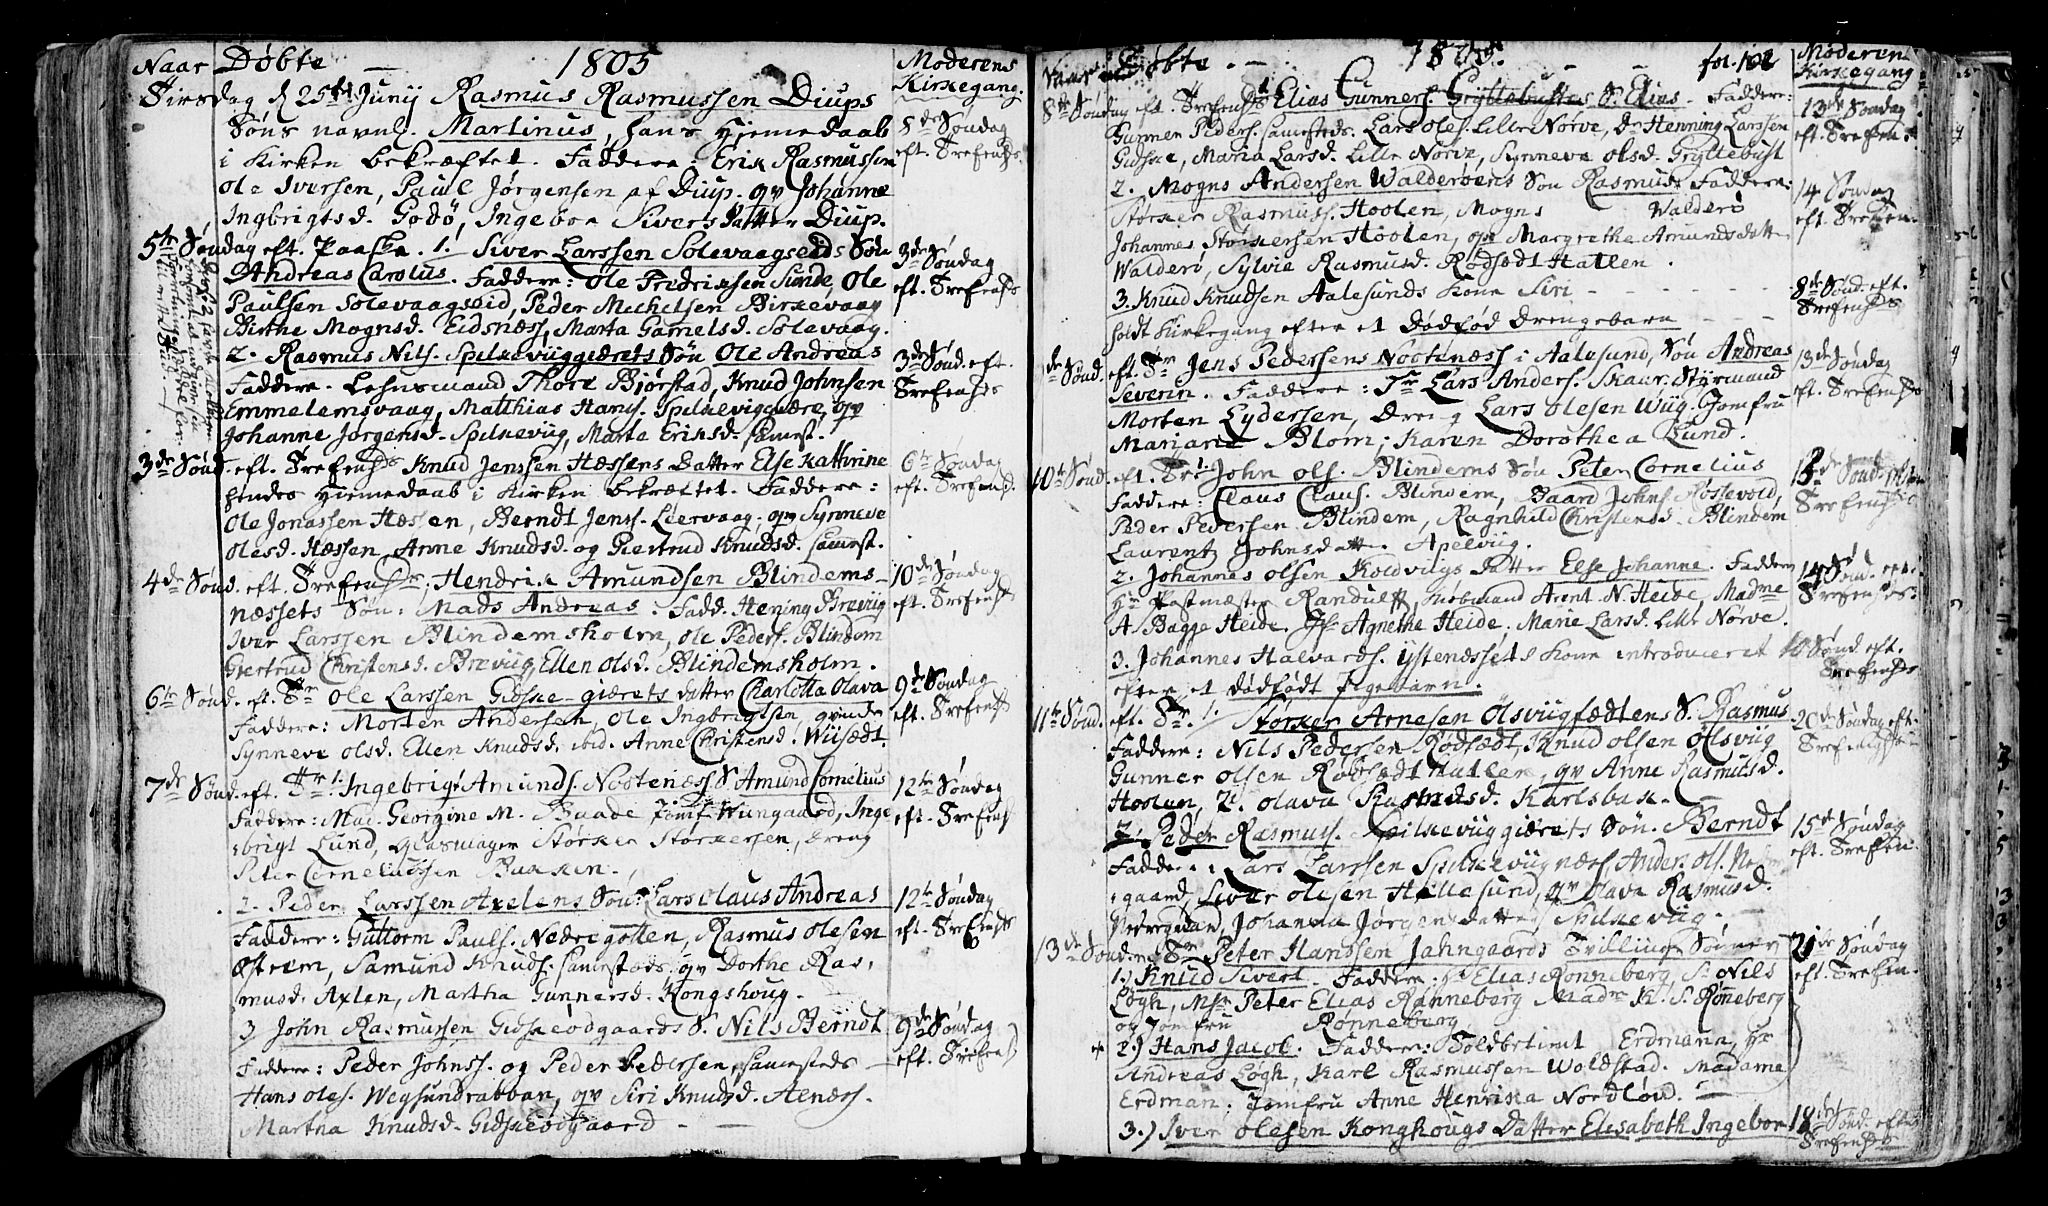 Naar Døbte — 1805
Moderens
Kirkegang.
Tirsdag d 25te Junij Rasmus Rasmussen Diups
Søns navnl. Martinus, hans Hjemedaab
i Kirken bekræftet. Faddere: Erik Rasmussen
Ole Iversen, Paul Jørgensen af Diup. qv Johanne
Ingbrigtsd. Godø, Ingebor Sivers Datter Diup.
8de Søndag
eft. Trefhs
5te Søndag eft. Paaske. 1. Siver Larssen Solevaagseids Søn
Andreas Carolus. Faddere: Ole Fredriksen Sunde, Ole
Paulsen Solevaagseid, Peder Michelsen Birkevaag
Birthe Mognsd. Eidsnæss, Marta Gamelsd. Solevaag.
3de Søndag
eft. Trefenhs
2. Rasmus Nils. Spilkeviiggiærets Søn Ole Andreas
Faddere. Lehnsmand Thore Bjørstad, Knud Johnsen
Emmelemsvaag, Matthias Hans. Spilkeviggiære, qv
Johanne Jørgensd. Spilkeviig, Marte Eriksd. samest.
3de Sønd. eft.
Trefenhs
3de Sønd. eft. Trefenhs Knud Jenssen Hæssens Datter Else Kathrine
hendes Hjemedaab i Kirken bekræftet. Faddere:
Ole Jonassen Hæssen, Berndt Jenss. Leervaag, qv Synneve
Olesd. Hæssen, Anne Knudsd. og Giertrud Knudsd. samest.
6te Søndag
eft. Trefenhd.
4de Sønd. eft. Trefenhs: Hendrik Amundsen Blindems-
næssets Søn: Mads Andreas. Fadd. Hening Breviig
Iver Larssen Blindemsholm, Ole Peders. Blindem
Giertrud Christensd. Breviig, Ellen Olsd. Blindemsholm.
10de Søndag
eft. Trefenhs
6te Sønd. eft. Tr Ole Larssen Gidske-giærets datter Charlotta Olava
Faddere: Morten Andersen, Ole Ingbrigtsen, qvinde
Synneve Olsd. Ellen Knudsd. ibid. Anne Christensd. Wiisædt.
9de Søndag
eft. Trefenhs
7de Sønd. eft. Tr 1. Ingebrigt Amunds. Nootenæss S. Amund Cornelius
Faddere: Mad. Georgine M. Baade Jomf Wungaard, Inge
brigt Lund, Glasmager Størker Størkersen, dreng
Peter Corneliussen Bakken.
12te Søndag
eft. Trefenhs
2. Peder Larssen Axelens Søn: Lars Olaus Andreas
Faddere: Guttorm Pauls. Nedregotten, Rasmus Olesen
Østrem, Samund Knuds. samesteds, qv Dorthe Ras,
musd. Axlen, Martha Gunnersd. Kongshoug.
12te Søndag
eft. Trefenhs
3 John Rasmussen Gidskeødgaards S. Nils Berndt
Faddere: Peder Johnss. og Peder Pederssen, samesteds
Hans Oles. Wegsundrabban, qv Siri Knudsd. Alnæss.
Martha Knudsd. Gidskeødgaard — —
9de Søndag
eft. Trefenhs
Naar Døbte. — 1805. — — fol. 102
Moderens
Kirkegang
8de Søndag eft. Trefenhs 1 Elias Gunners. Gryttebustes S. Elias. Faddere:
Gunner Peders. samesteds. Lars Oles. Lille Nørve, Dr Henning Larssen
Gidske, Maria Larsd. Lille Nørve, Synneva Olsd. Gryttebust
13de Søndag
eft. Trefen.
2. Mogns Andersen Walderøens Søn Rasmus Faddere:
Størker Rasmuss. Hoolen, Mogns Walderø
Johannes Størkersen Hoolen, qv Margrethe Amundsdatter
Walderø, Sylvie Rasmusd. Rødsædt Hatlen.
14 Søndag
eft. Trefen.
3. Knud Knudsen Aalesunds Kone Siri — — —
holdt Kirkegang efter et dødfød drengebarn — —
8de Sønd. eft.
Trefenhs
de Sønd. eft. Tr Jens Pedersens Nootenæss i Aalesund, Søn Andreas
Severin. Faddere: Sr Lars Anders. Skaur. Styrmand
Morten Lydersen, Dreng Lars Olesen Wiig. Jomfru
Mariane Blom. Karen Dorothea Lund.
13de Søndag
eft. Trefenhs
10de Sønd. eft. Tr. 1. John Ols. Blindems Søn Peter Cornelius
Faddere: Claus Claus. Blindem, Baard Johns Røssevold,
Peder Pedersen Blindem, Ragnhild Christensd. Blindem
Laurentz Johnsdatter Apelviig.
Trefenhs
2. Johannes Olsen Koldviigs datter Else Johanne. Fadder
Hr Postmæster Randulff, Kiøbmand Arent N. Heide, Madme
A. Bagge Heide, Jfr Agnethe Heide, Marie Larsd. Lille Nørve.
14 Sønd. eft.
Trefenhs.
3. Johannes Halvards. Ystenæssets Kone introduceret
efter et dødfødt Pigebarn.
10 Sønd. eft.
Trefenhs
11te Sønd. eft. Tr. 1. Størker Arnesen Olsviigfædtens S. Rasmus
Faddere: Nils Pedersen Rødsædt, Knud Olsen Olsviig
Gunner Olsen Rødsædt Hatlen, qv Anne Rasmusd.
Hoolen, 2. Olava Rasmusd. Karlsbak. —
20de Søndag eft.
2. Peder Rasmuss. Spilkeviiggiærets Søn. Berndt
Faddere: Lars Larssen Spilkeviignæss Anders Ols. Neder
gaard, Siver Olesen Hellesund, qv Olava Rasmusd.
Nedregaard, Johanna Jørgensdatter Spilkeviig.
15de Søndag
eft. Trefen.
13de Sønd. e. Tr Peter Hanssen Jahngaards Tvillinge Sønner
1.) Knud Sivert. Faddere: Hr Elias Rønneberg, Sr Nils
Løgh, Msr Peter Elias Rønneberg Madm K. S. Røneberg
og Jomfru Rønneberg
21de Søndag
eft. Trefen.
2.) Hans Jacob. Faddere: Toldbetient Erdmann, Hr
Andreas Løgh, Karl Rasmussen Woldstad. Madame
Erdman. Jomfru Anne Henrika Nordløw. —
3.) Iver Olesen Konghougs Datter Elisabeth Ingebor
18de Sønd. eft.
Trefenhs